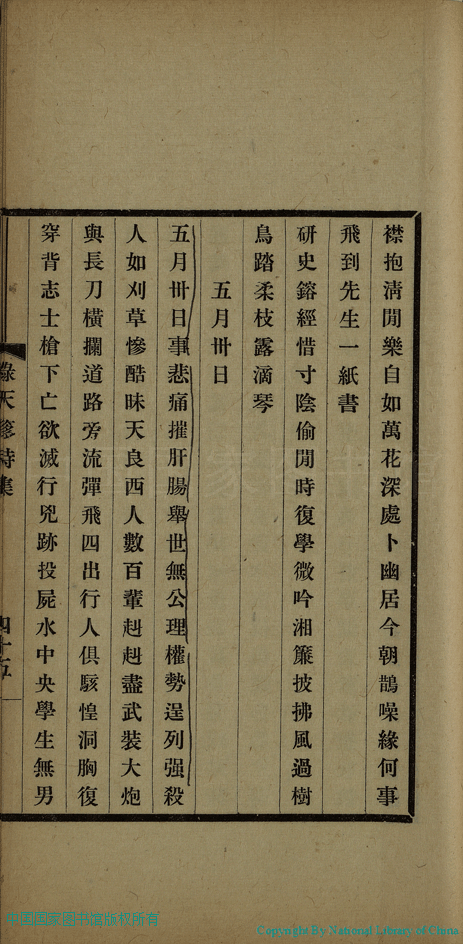 襟抱淸閒樂自如萬花深處卜幽居今朝鵲噪緣何事
飛到先生一紙書
研史鎔經惜寸陰偷閒時復學微吟湘簾披拂風過樹
鳥踏柔枝露滴琴
五月卅日
五月卅日事悲痛摧肝腸舉世無公理權勢逞列强殺
人如刈草慘酷昧天良西人數百輩赳赳盡武裝大炮
與長刀橫攔道路旁流彈飛四出行人俱駭惶洞胸復
穿背志士槍下亡欲滅行兇跡投屍水中央學生無男
天
詩集
四十五
中国国家图书馆版权所有
Copyright By National Library of China